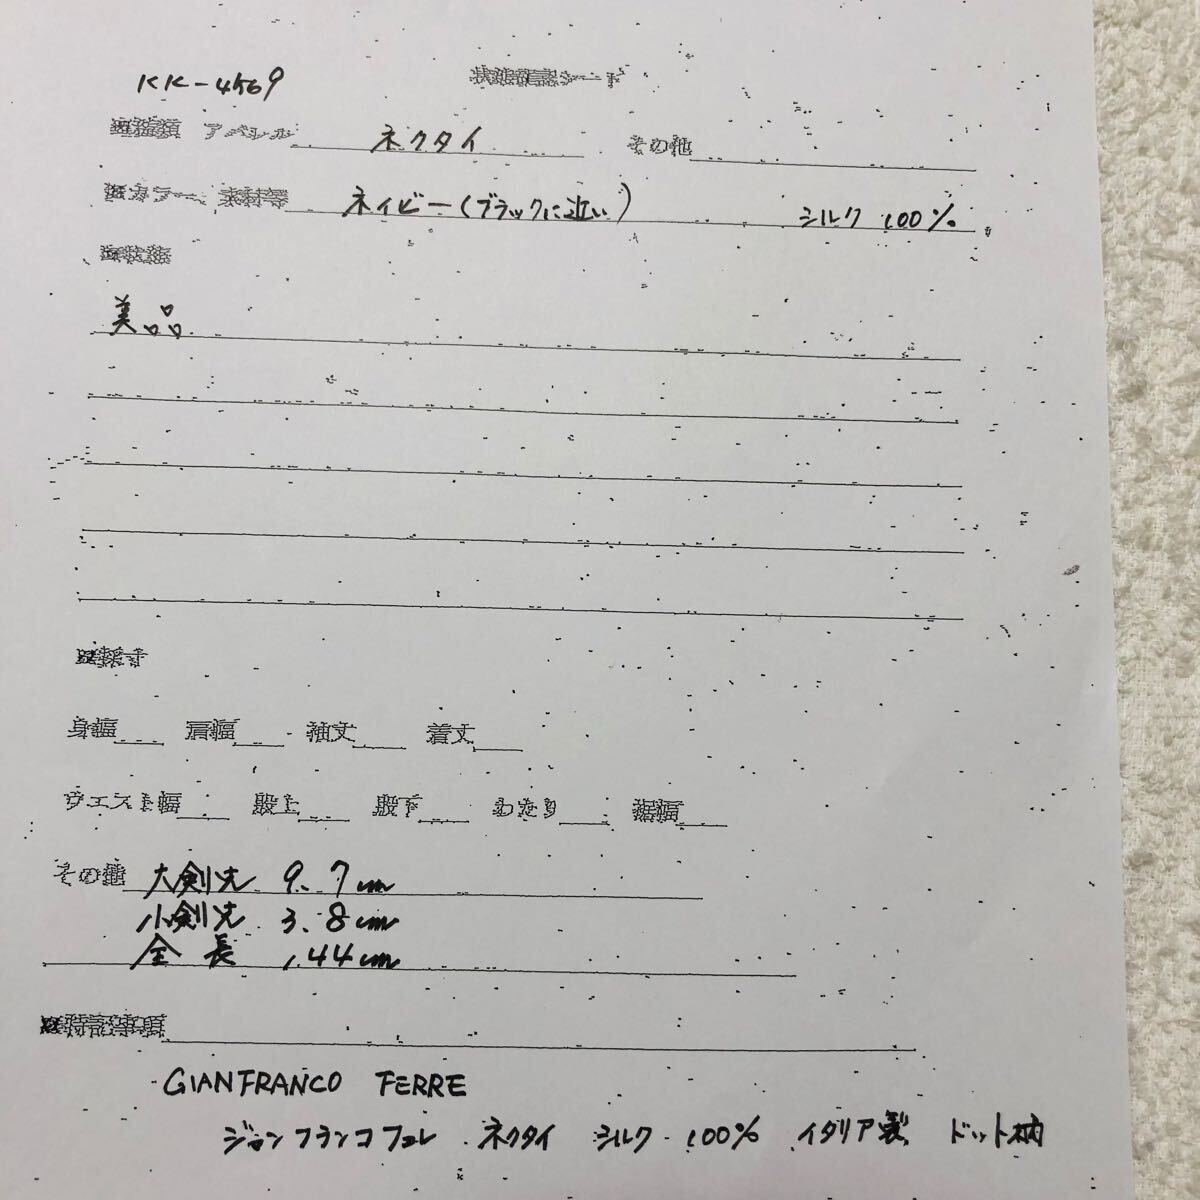 KK-4569 状態確認シート
■種類 アパレル ネクタイ その他
■カラー、素材等 ネイビー(ブラックに近い) シルク 100%
■状態
美品
■採寸
身幅 肩幅 袖丈 着丈
ウエスト幅 股上 股下 わたり 裾幅
その他 大剣先 9.7cm
小剣先 3.8cm
全長 144cm
■特記事項
GIANFRANCO FERRE
ジャンフランコフェレ ネクタイ シルク 100% イタリア製 ドット柄